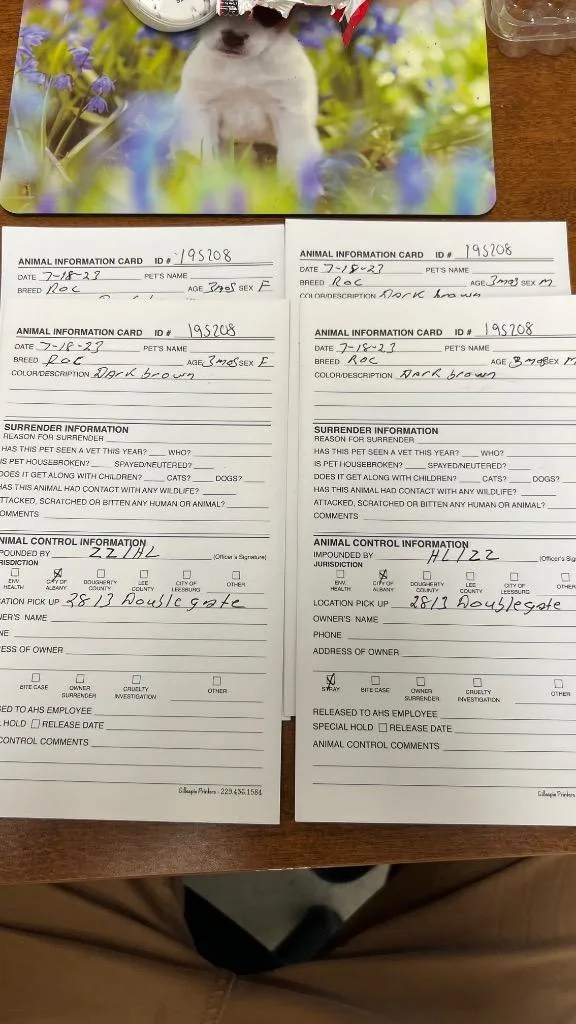 ANIMAL INFORMATION CARD ID # 195208
DATE 7-18-23 PET'S NAME
BREED ROC AGE 3mos SEX F
ANIMAL INFORMATION CARD ID # 195208
DATE 7-18-23 PET'S NAME
BREED ROC AGE 3mos SEX M
COLOR/DESCRIPTION Dark brown
ANIMAL INFORMATION CARD ID # 195208
DATE 7-18-23 PET'S NAME
BREED ROC AGE 3mos SEX F
COLOR/DESCRIPTION Dark brown
SURRENDER INFORMATION
REASON FOR SURRENDER
HAS THIS PET SEEN A VET THIS YEAR? WHO?
IS PET HOUSEBROKEN? SPAYED/NEUTERED?
DOES IT GET ALONG WITH CHILDREN? CATS? DOGS?
HAS THIS ANIMAL HAD CONTACT WITH ANY WILDLIFE?
ATTACKED, SCRATCHED OR BITTEN ANY HUMAN OR ANIMAL?
OMMENTS
NIMAL CONTROL INFORMATION
POUNDED BY ZZ/HL (Officer's Signature)
RISDICTION
ENV. HEALTH CITY OF ALBANY DOUGHERTY COUNTY LEE COUNTY CITY OF LEESBURG OTHER
CATION PICK UP 2813 Doublegate
NER'S NAME
NE
ESS OF OWNER
BITE CASE OWNER SURRENDER CRUELTY INVESTIGATION OTHER
SED TO AHS EMPLOYEE
HOLD RELEASE DATE
CONTROL COMMENTS
Gillespie Printers - 229.436.1584
ANIMAL INFORMATION CARD ID # 195208
DATE 7-18-23 PET'S NAME
BREED ROC AGE 3 mos SEX M
COLOR/DESCRIPTION Dark brown
SURRENDER INFORMATION
REASON FOR SURRENDER
HAS THIS PET SEEN A VET THIS YEAR? WHO?
IS PET HOUSEBROKEN? SPAYED/NEUTERED?
DOES IT GET ALONG WITH CHILDREN? CATS? DOGS?
HAS THIS ANIMAL HAD CONTACT WITH ANY WILDLIFE?
ATTACKED, SCRATCHED OR BITTEN ANY HUMAN OR ANIMAL?
COMMENTS
ANIMAL CONTROL INFORMATION
IMPOUNDED BY HL/ZZ (Officer's Sig
JURISDICTION
ENV. HEALTH CITY OF ALBANY DOUGHERTY COUNTY LEE COUNTY CITY OF LEESBURG OTHER
LOCATION PICK UP 2813 Doublegate
OWNER'S NAME
PHONE
ADDRESS OF OWNER
STRAY BITE CASE OWNER SURRENDER CRUELTY INVESTIGATION OTHER
RELEASED TO AHS EMPLOYEE
SPECIAL HOLD RELEASE DATE
ANIMAL CONTROL COMMENTS
Gillespie Printers